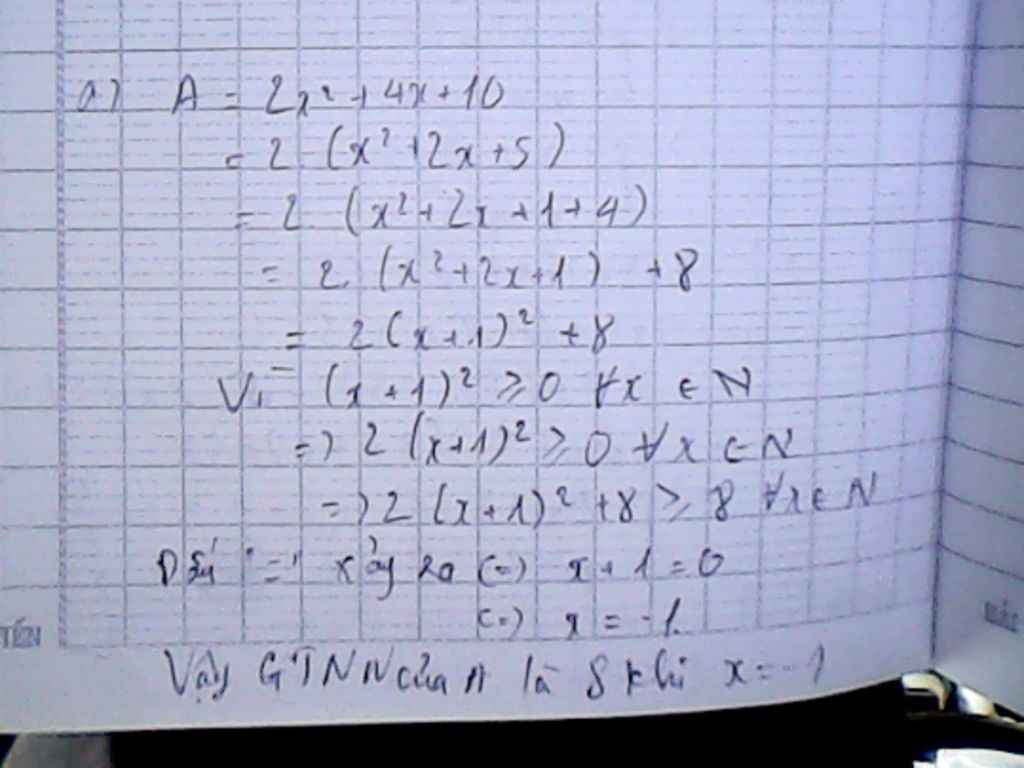 a) A = 2x² + 4x + 10
= 2 (x² + 2x + 5)
= 2 (x² + 2x + 1 + 4)
= 2 (x² + 2x + 1) + 8
= 2 (x + 1)² + 8
Vì (x + 1)² ≥ 0 ∀x ∈ N
=) 2 (x + 1)² ≥ 0 ∀x ∈ N
=) 2 (x + 1)² + 8 ≥ 8 ∀x ∈ N
Dấu "=" xảy ra (=) x + 1 = 0
(=) x = -1.
Vậy GTNN của A là 8 khi x = -1
TÊN